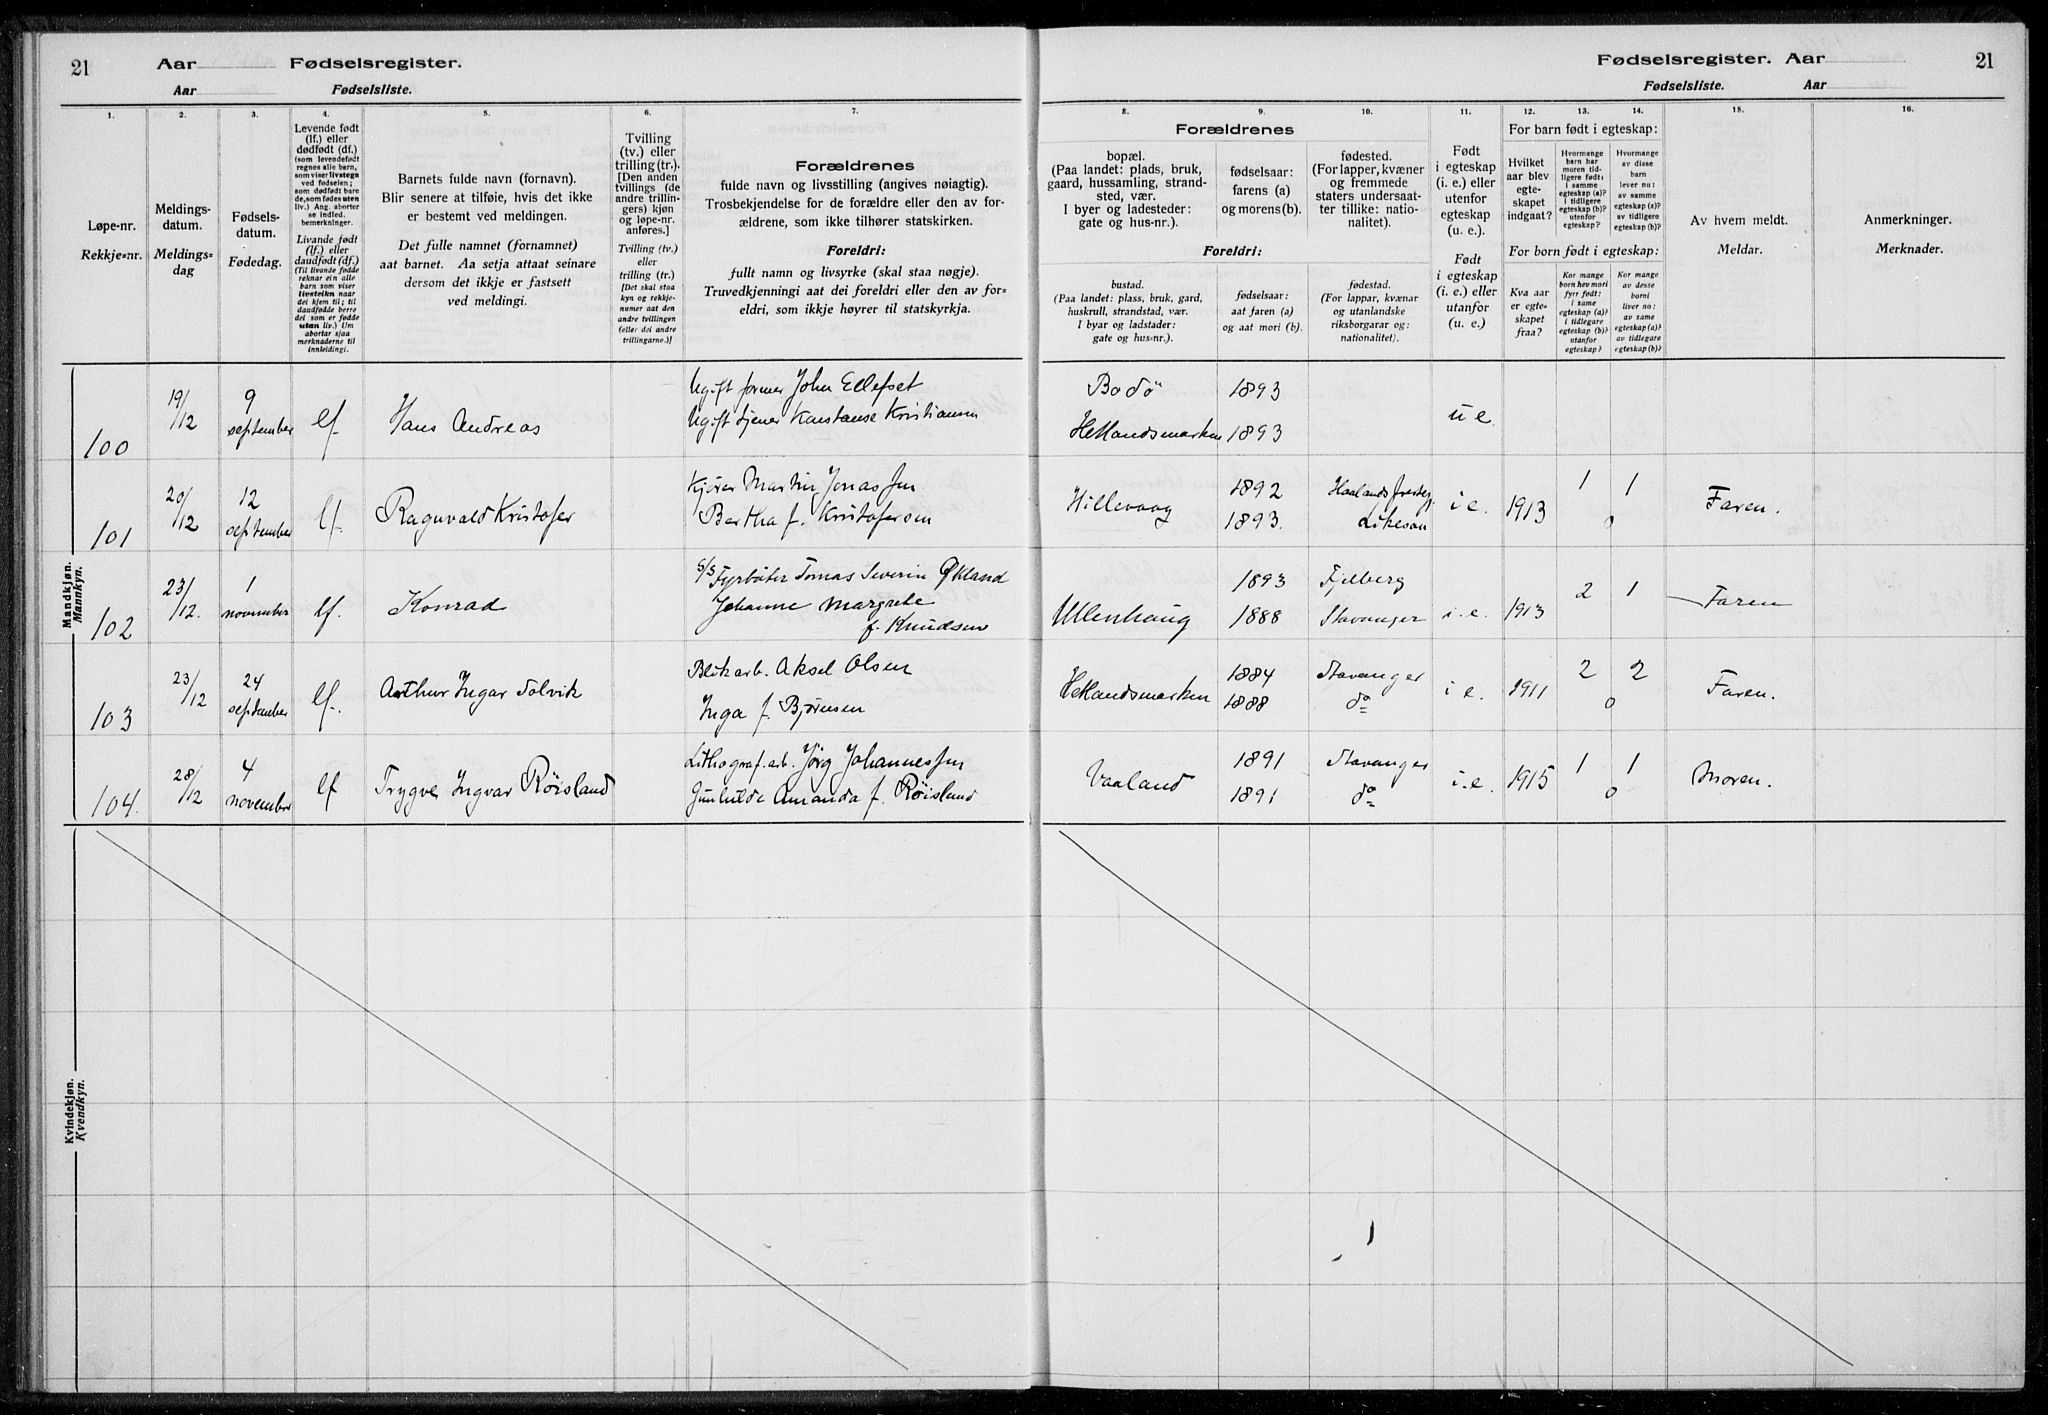 21 Aar Fødselsregister.
Aar Fødselsliste.
Fødselsregister. Aar 21
Fødselsliste. Aar
1. 2. 3. 4. 5. 6. 7. 8. 9. 10. 11. 12. 13. 14. 15. 16.
Løpe-nr.
Rekkje=nr.
Meldings-
datum.
Meldings=
dag
Fødsels-
datum.
Fødedag.
Levende født
(lf.) eller
dødfødt (df.)
(som levendefødt
regnes alle barn,
som viser livstegn
ved fødselen;
som dødfødt bare
de, som fødes uten
liv.) Ang. aborter
se indled.
bemerkninger.
Livande født
(lf.) eller
daudfødt (df.)
(Til livande fødde
reknar ein alle
barn som viser
livsteikn naar
dei kjem til; til
daudfødde berre
dei som er fødde
utan liv.) Um
abortar sjaa
merknaderne til
innleidingi.
Barnets fulde navn (fornavn).
Blir senere at tilføie, hvis det ikke
er bestemt ved meldingen.
Det fulle namnet (fornamnet)
aat barnet. Aa setja attaat seinare
dersom det ikkje er fastsett
ved meldingi.
Tvilling
(tv.) eller
trilling (tr.).
[Den anden
tvillings (de
andre trillin-
gers) kjøn
og løpe-nr.
anføres.]
Tvilling (tv.)
eller
trilling (tr.)
[Det skal staa
kyn og rekkje-
numer aat den
andre tvillingen
(eller: dei andre
trillingarne.)]
Forældrenes
fulde navn og livsstilling (angives nøiagtig).
Trosbekjendelse for de forældre eller den av for-
ældrene, som ikke tilhører statskirken.
Foreldri:
fullt namn og livsyrke (skal staa nøgje).
Truvedkjenningi aat dei foreldri eller den av for=
eldri, som ikkje høyrer til statskyrkja.
Forældrenes
bopæl.
(Paa landet: plads, bruk,
gaard, hussamling, strand-
sted, vær.
I byer og ladesteder:
gate og hus-nr.).
fødselsaar:
farens (a)
og morens (b).
fødested.
(For lapper, kvæner
og fremmede
staters undersaat-
ter tillike: natio-
nalitet).
Foreldri:
bustad.
(Paa landet: plass, bruk, gard,
huskrull, strandstad, vær.
I byar og ladstader:
gate og hus=nr.).
fødselsaar:
aat faren (a)
og aat mori (b).
fødestad.
(For lappar, kvænar
og utanlandske
riksborgarar og:
nationalitet).
Født
i egteskap
(i. e.) eller
utenfor
egteskap
(u. e.).
Født
i egteskap
(i. e.) eller
utanfor
(u. e.)
For barn født i egteskap:
Hvilket
aar blev
egte-
skapet
indgaat?
Hvormange
barn har
moren tid-
ligere født:
i samme
egteskap (a)?
i tidligere
egteskap (b)?
utenfor
egteskap?
Hvormange
av disse
barn
lever nu:
av samme
egteskap (a)?
av tidligere
egteskap (b)?
For born født i egteskap:
Kva aar
er egte=
skapet
fraa?
Kor mange
born hev mori
fyrr født:
i same
egteskap (a)?
i tidlegare
egteskap (b)?
utanfor
egteskap?
Kor mange
av desse
borni
liver no:
av same
egteskap (a)?
av tidlegare
egteskap (b)?
Av hvem meldt.
Meldar.
Anmerkninger.
Merknader.
Mandkjøn.
Mannkyn.
100 19/12 9 september lf. Hans Andreas
Ugift former John Ellefset Bodö 1893
Ugift tjener Konstanse Kristiansen Hetlandsmarken 1893 u e
101 20/12 12 september lf. Ragnvald Kristofer
Kjører Martin Jonassen Hillevaag 1892
Bertha f. Kristofersen 1893. i e. 1913 1 1 0 Faren.
102 23/12. 1 november lf. Konrad
S/S Fyrbøter Tomas Severin Økland 1893 Fjelberg
Johanne Margrete Ullenhaug 1888 Stavanger i. e. 1913 2 1 Faren
f. Knudsen
103 23/12 24 september lf. Arthur Ingar Solvik
Blikarb. Aksel Olsen Hetlandsmarken 1884 Stavanger
Inga f. Bjørnsen 1888 do i e. 1911 2 2 0 Faren.
104. 28/12 4 november lf Trygve Ingvar Röisland
Lithograf. arb. Jörg Johannessen Vaaland 1891 Stavanger
Gunhilde Amanda f. Röisland 1891 do i. e. 1915 1 1 0 Moren.
Kvindekjøn.
Kvendkyn.